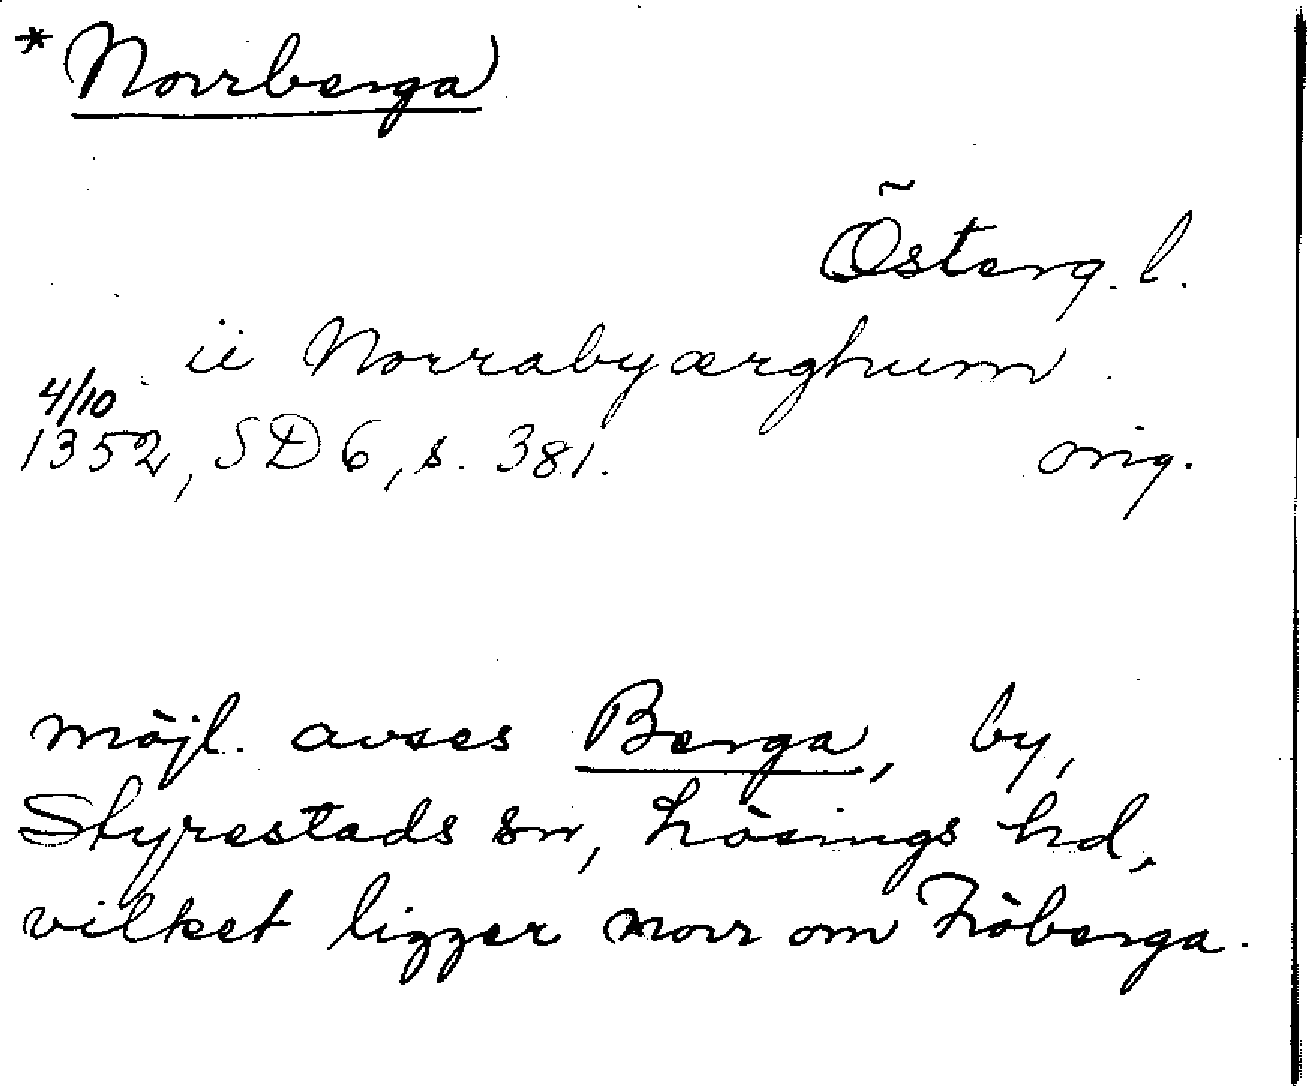 * Norrberga
Österg. l.
ii Norrabyærghum
4/10
1352, SD 6, s. 381. orig.
möjl. avses Berga, by,
Styrestads sn, Lösings hd,
vilket ligger norr om Fröberga.